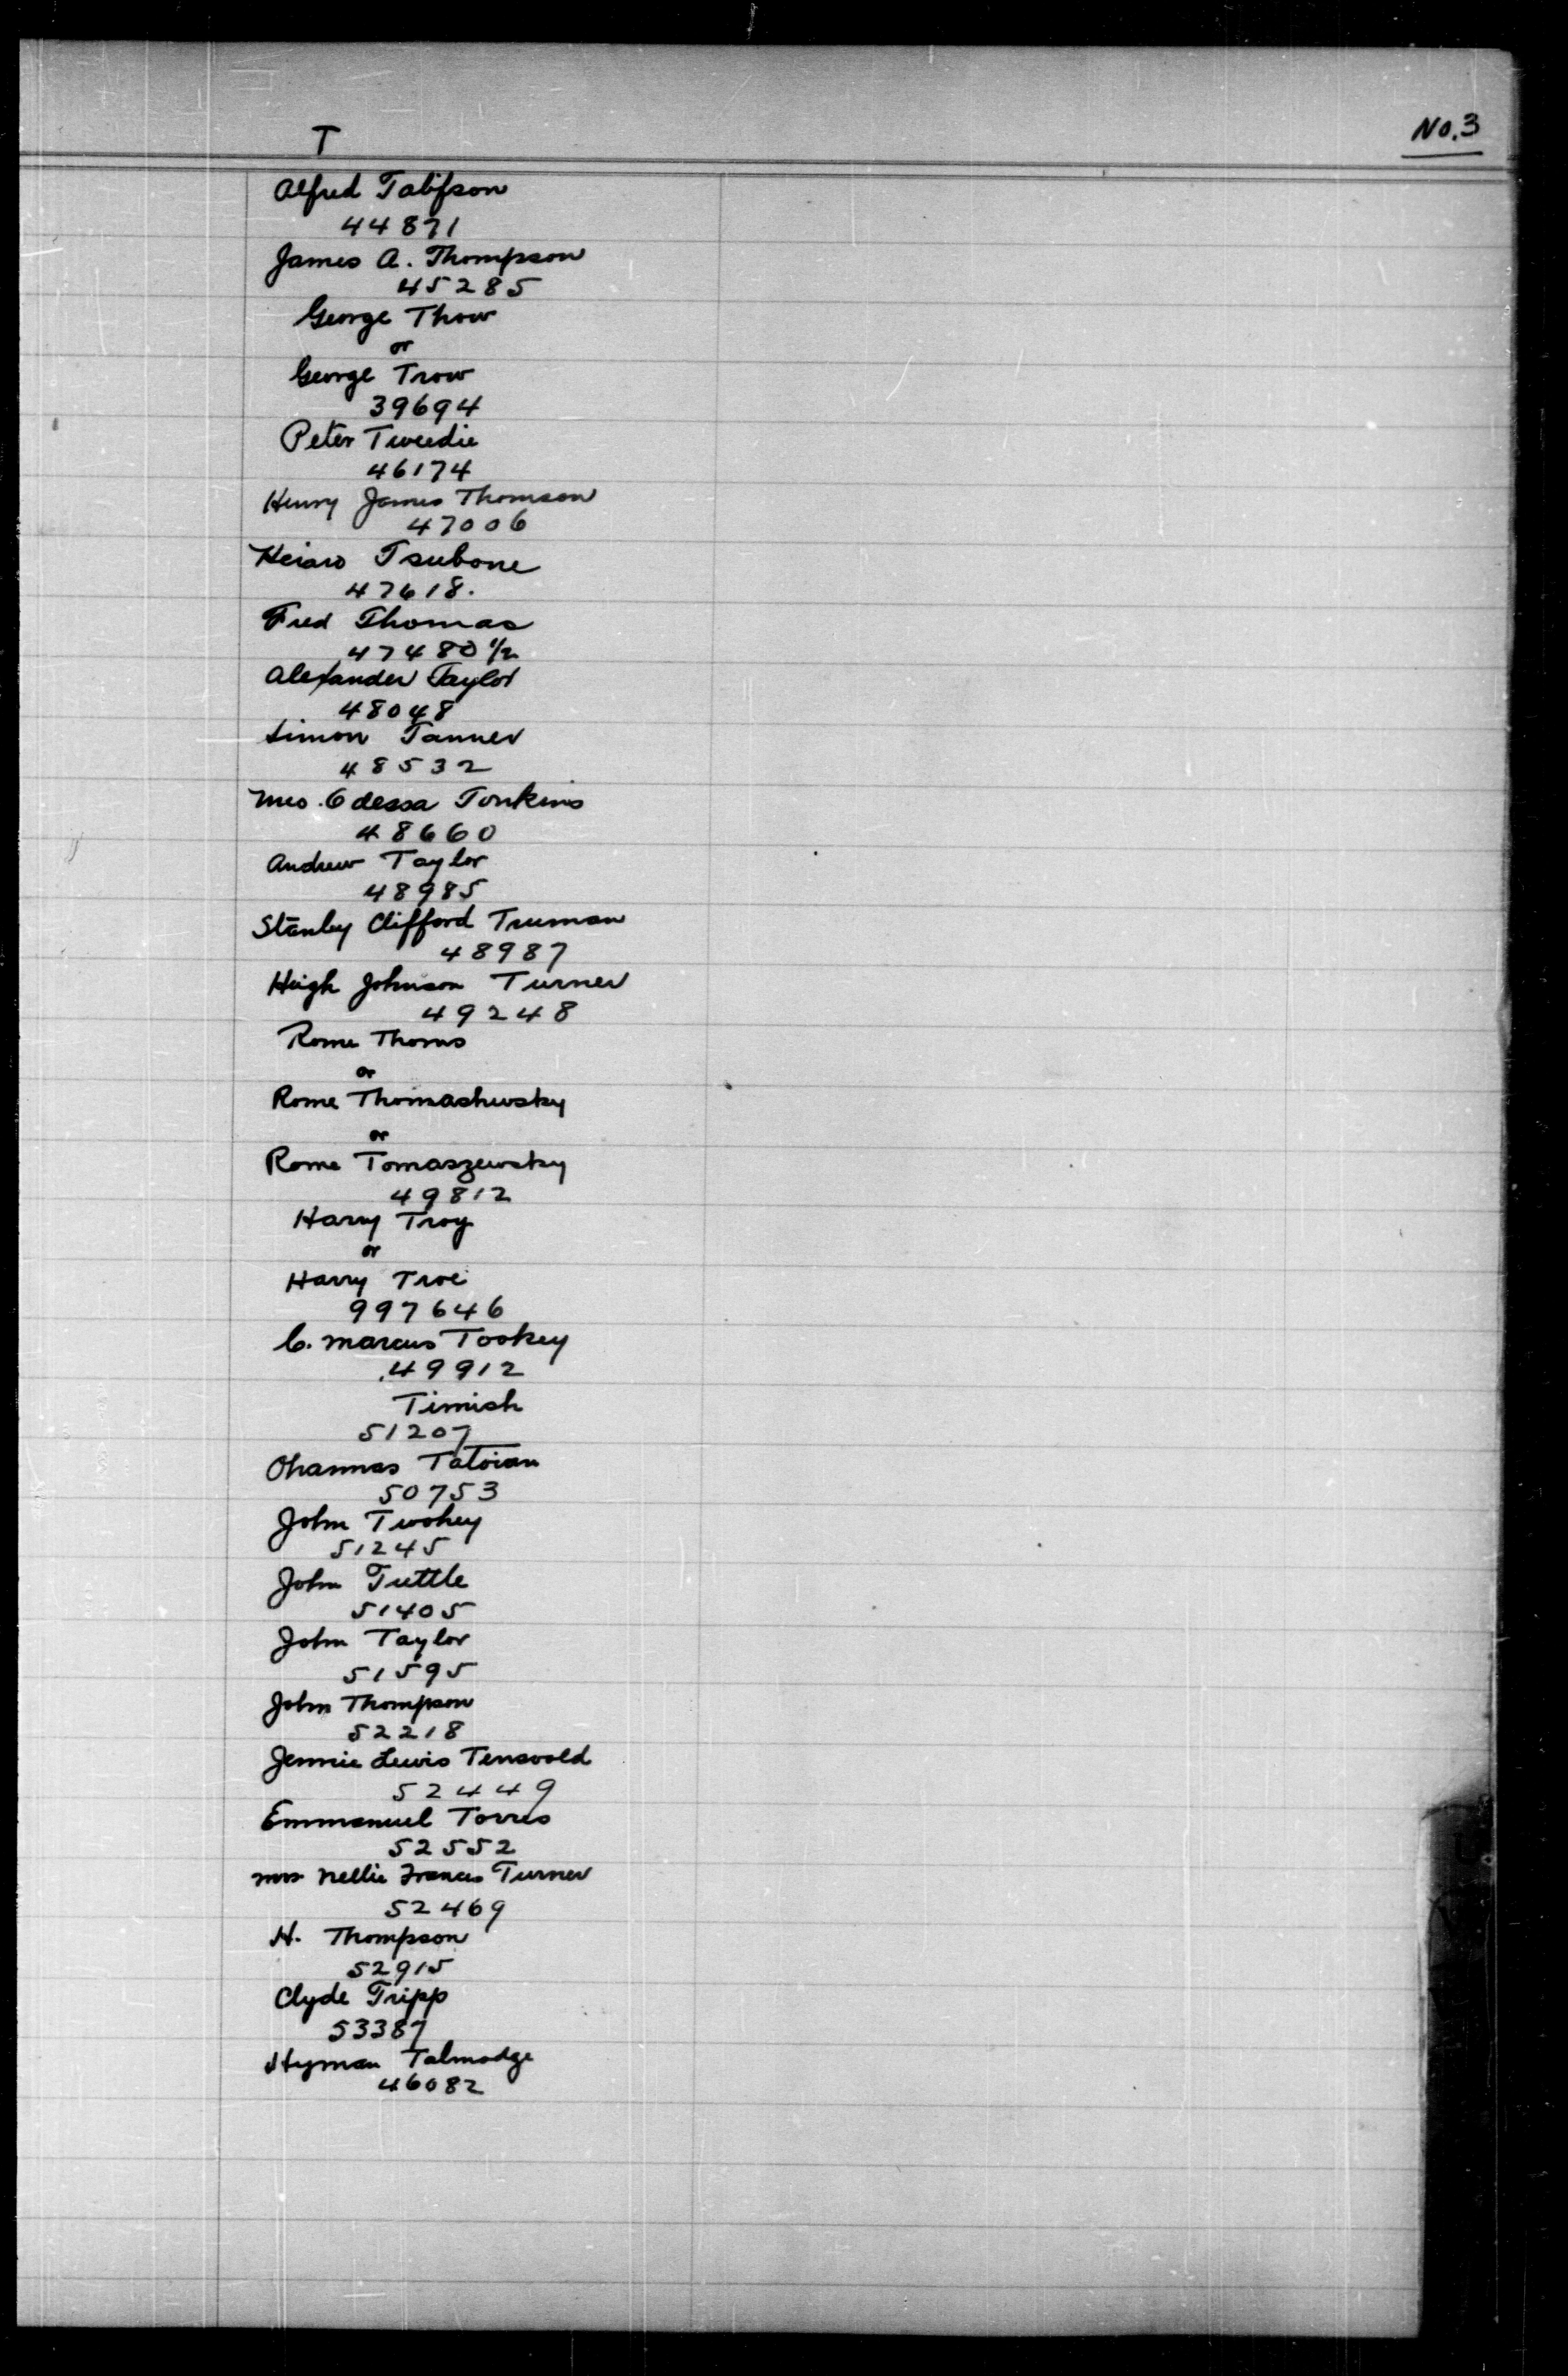 T
No. 3
Alfred Talifson
44871
James A. Thompson
45285
George Thow
or
George Trow
39694
Peter Tweedie
46174
Henry James Thomson
47006
Tsubone
47618.
Fred Thomas
47480 1/2
Alexander Taylor
48048
Simon Tanner
48532
Mrs. Odessa Tonkins
48660
Andrew Taylor
48985
Stanley Clifford Truman
48987
Hugh Johnson Turner
49248
Rome Thoms
or
Rome Thomashewsky
or
Rome Tomaszewsky
49812
Harry Troy
or
Harry Troe
997646
C. Marcus Tookey
49912
Timish
51207
Ohannas Tatoian
50753
John Twohey
51245
John Tuttle
51405
John Taylor
51595
John Thompson
52218
Jennie Lewis Tensvold
52449
Emmanuel Torres
52552
Mrs Nellie Frances Turner
52469
H. Thompson
52915
Clyde Tripp
53387
Hyman Talmadge
46082